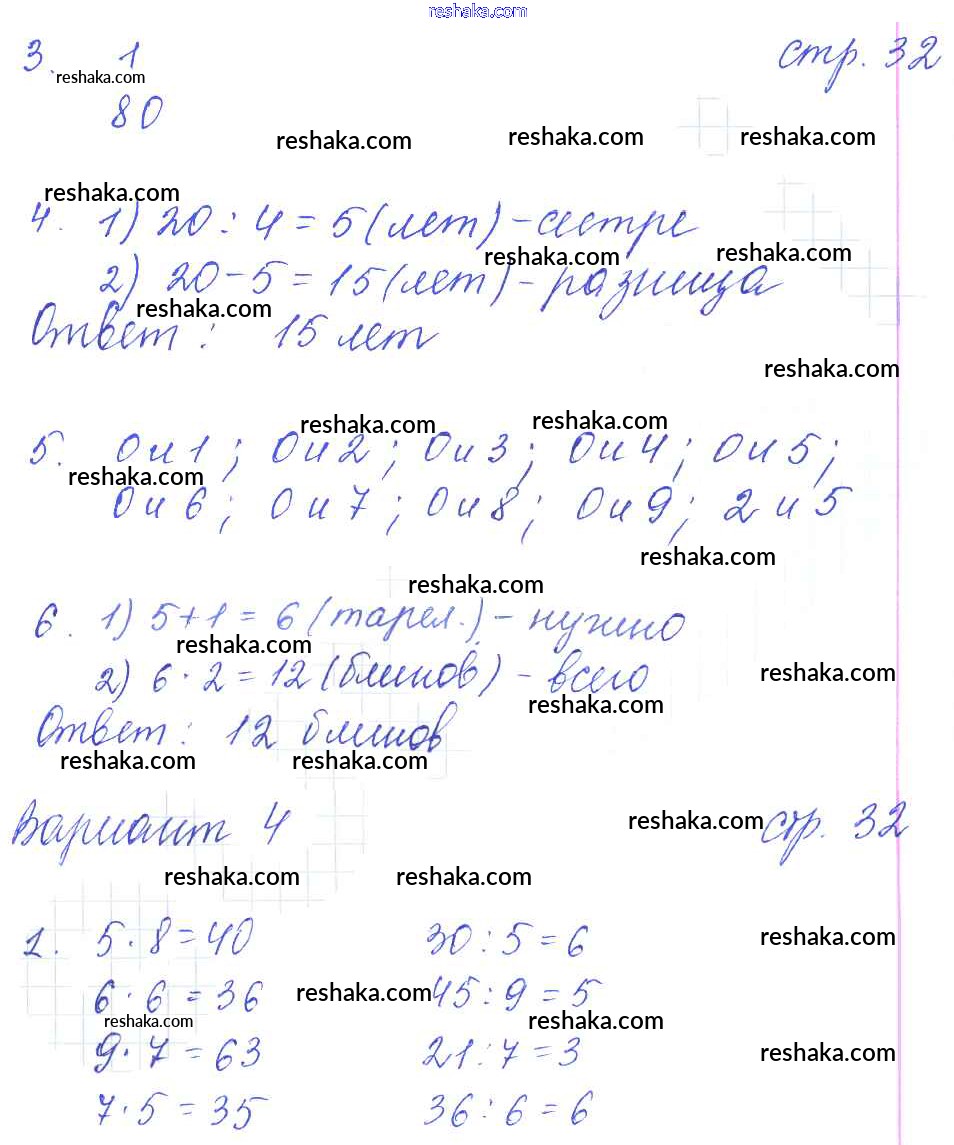 reshaka.com
3. 1 стр. 32
reshaka.com
80
reshaka.com reshaka.com reshaka.com
reshaka.com
4. 1) 20 : 4 = 5 (лет) - сестре
reshaka.com reshaka.com
2) 20 - 5 = 15 (лет) - разница
reshaka.com
Ответ : 15 лет
reshaka.com
reshaka.com reshaka.com
5. 0 и 1 ; 0 и 2 ; 0 и 3 ; 0 и 4 ; 0 и 5 ;
reshaka.com
0 и 6 ; 0 и 7 ; 0 и 8 ; 0 и 9 ; 2 и 5
reshaka.com
reshaka.com
6. 1) 5 + 1 = 6 (тарел.) - нужно
reshaka.com
2) 6 · 2 = 12 (блинов) - всего
reshaka.com
reshaka.com
Ответ : 12 блинов
reshaka.com reshaka.com
Вариант 4 reshaka.com стр. 32
reshaka.com reshaka.com
1. 5 · 8 = 40 30 : 5 = 6 reshaka.com
6 · 6 = 36 reshaka.com 45 : 9 = 5
reshaka.com reshaka.com
9 · 7 = 63 21 : 7 = 3 reshaka.com
7 · 5 = 35 36 : 6 = 6